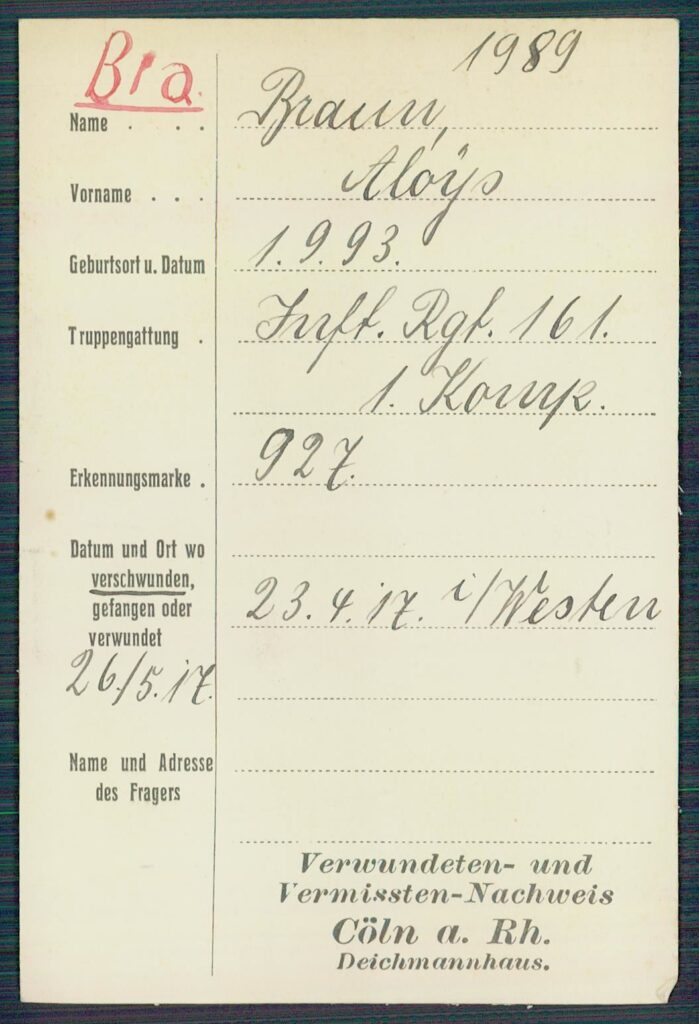 Bra.
1989
Name . . . Braun,
Vorname . . . Aloÿs
Geburtsort u. Datum 1.9.93.
Truppengattung . Inft. Rgt. 161.
1. Komp.
Erkennungsmarke . 927.
Datum und Ort wo
verschwunden,
gefangen oder 23.4.17. i/Westen
verwundet
26./5.17.
Name und Adresse
des Fragers
Verwundeten- und
Vermissten-Nachweis
Cöln a. Rh.
Deichmannhaus.